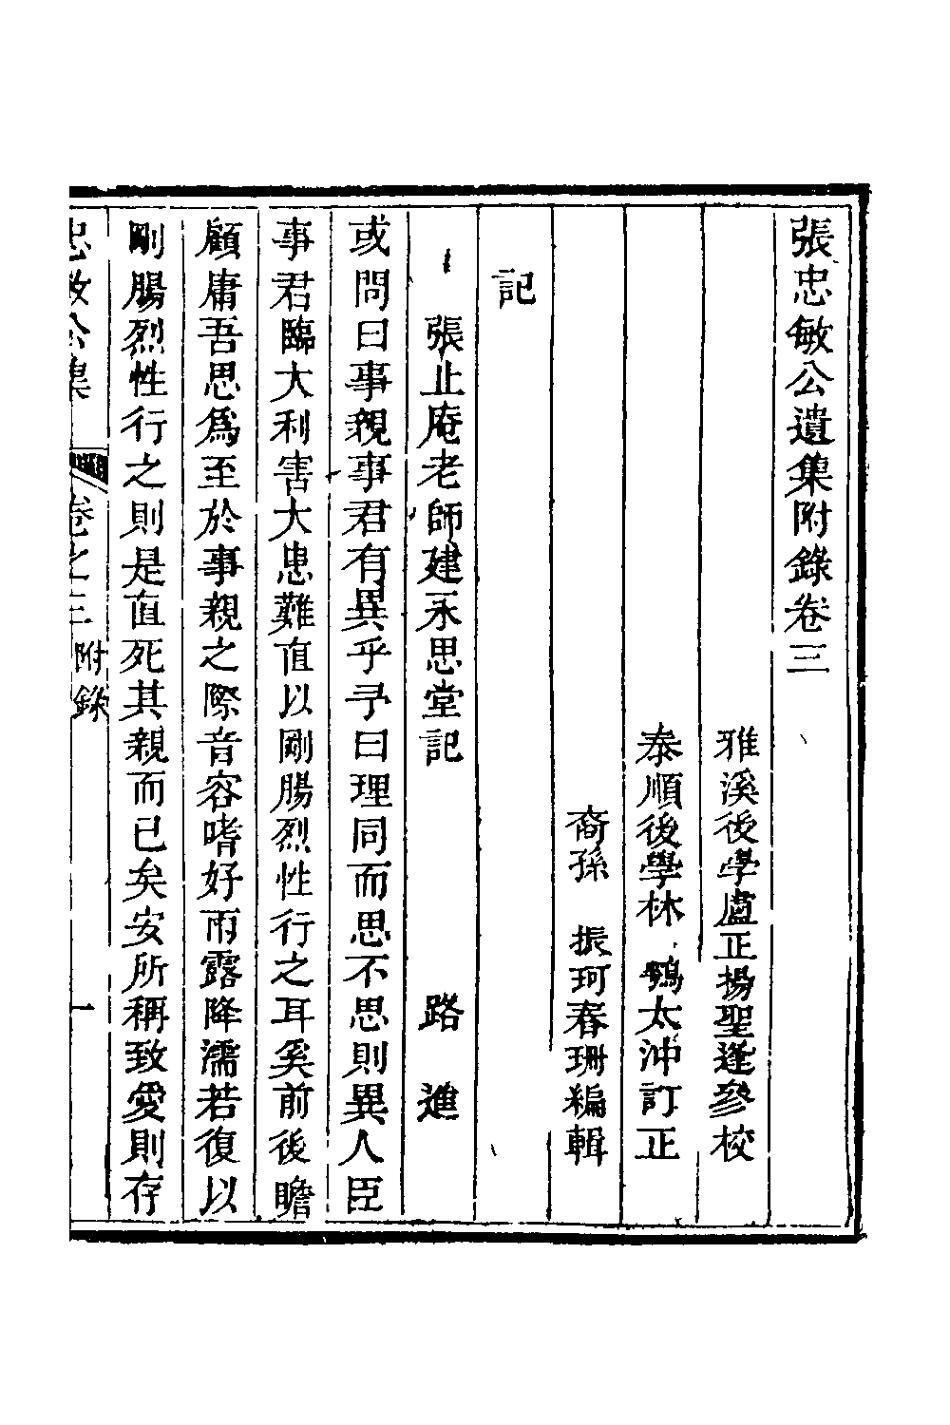 張忠敏公遺集附錄卷三
雅溪後學盧正揚聖逢參校
泰順後學林鶚太沖訂正
裔孫振珂春珊編輯
記
張止庵老師建永思堂記 路進
或問曰事親事君有異乎予曰理同而思不思則異人臣
事君臨大利害大患難直以剛腸烈性行之耳奚前後瞻
顧庸吾思爲至於事親之際音容嗜好雨露降濡若復以
剛腸烈性行之則是直死其親而已矣安所稱致愛則存
忠敏公集 卷之三 附錄 一